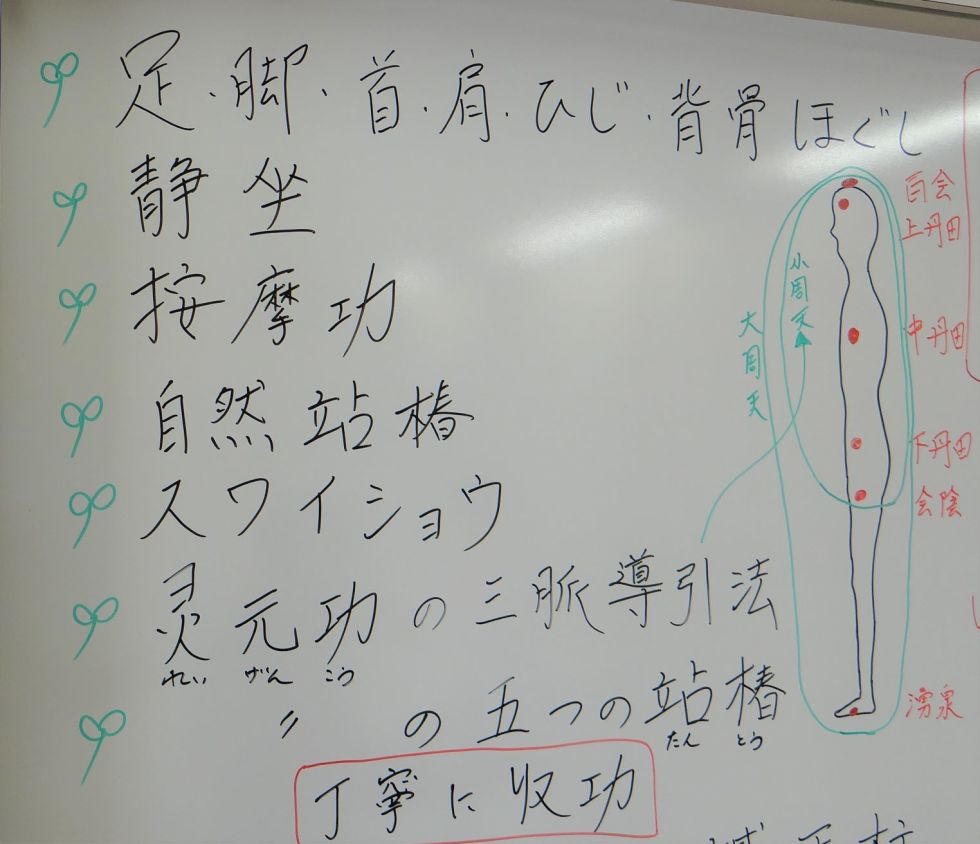 足・脚・首・肩・ひじ・背骨ほぐし
静坐
按摩功
自然站椿
スワイショウ
灵元功の三脈導引法
れい げん こう
〃 の五つの站椿
たん とう
丁寧に収功
百会
上丹田
小周天
大周天
中丹田
下丹田
会陰
湧泉